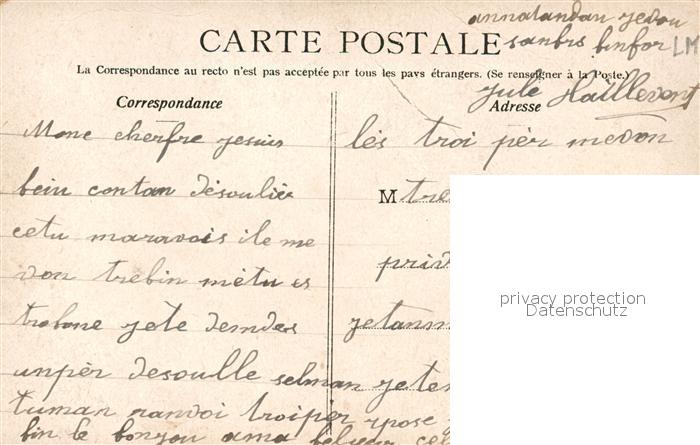 annatandan jevou
sanbrs binfor LM
CARTE POSTALE
La Correspondance au recto n'est pas acceptée par tous les pays étrangers. (Se renseigner à la Poste.)
Jule Haillevent
Correspondance
Adresse
Mone cherfre jesuis
bein contan désoulier
cetu maravois ile me
von trebin métu es
trobone jete demders
unpèr desoulle selman
tuman ranvoi troiper
bin le bonjou ama belseur
lès troi pèr medon
M tre
priv
jetanm
jeten
rpose
privacy protection
Datenschutz